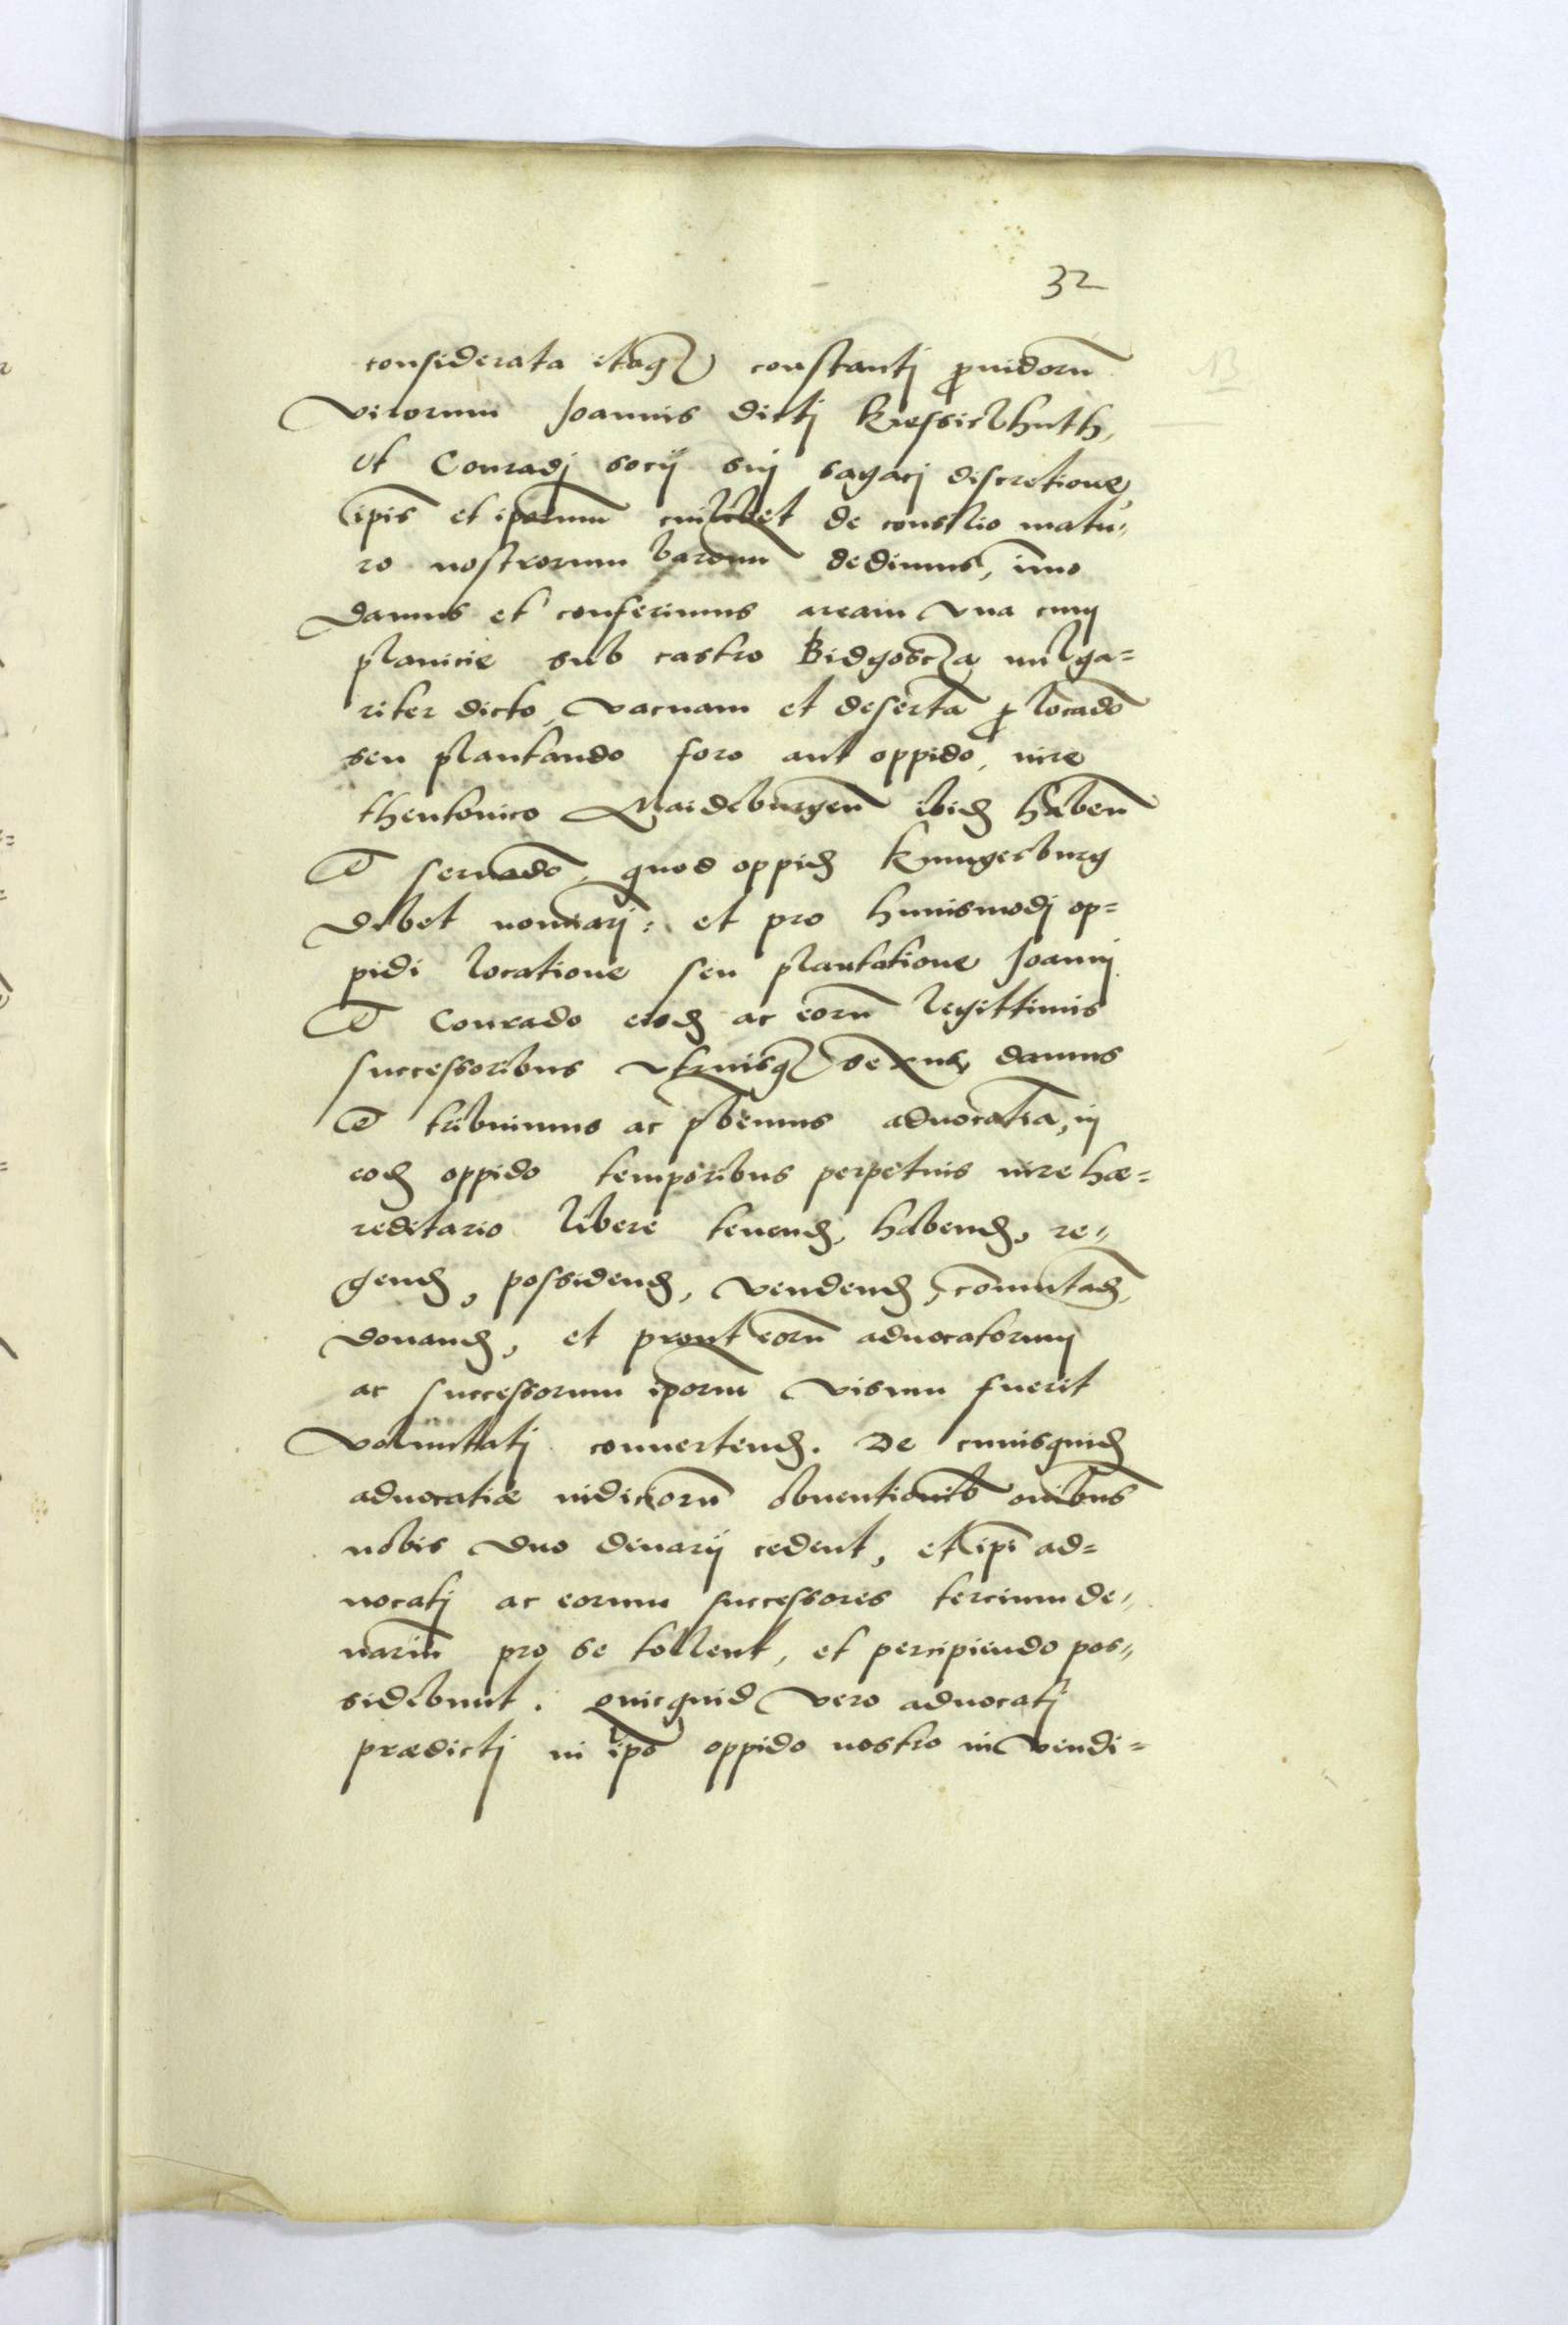 32
13
considerata itaq₃ constantj ꝓuidorū
virorum Joannis dictj Kiesſiclhuth,
et Conradj socij suj sagacj discretione,
ip̄is et ip̄orum cuilibet de consilio matu„
ro nostrorum baronū dedimus, imo
damus et conferimus aream vna cum
planicie sub castro Bidgoscza uulga=
riter dicto, vacuam et desertā ꝓ locādo
seu plantando foro aut oppido, iure
theutonico Maideburgeñ ibid habeñ
et seruādo, quod oppid Kunigesburg
debet nominarj: et pro huiusmodj op=
pidi locatione seu plantatione Joannj
et Conrado eisd ac eorū legittimis
successoribus vtriusq₃ sexus, damus
et tribuimus ac p̄bemus aduocatiā, in
eod oppido temporibus perpetuis iure hæ=
reditario libere tenend, habend, re„
gend, possidend, vendend, com̄utād,
donand, et prout eorū aduocatorum
ac successorum ip̄orum visum fuerit
voluntatj conuertend. De cuiusquid
aduocatiæ iudiciorū obuentionib omībus
nobis duo denarij cedent, et ip̄i ad=
uocatj ac eorum successores tercium de„
nariū pro se tollent, et percipiendo pos„
sidebunt. Quicquid vero aduocatj
prædictj in ip̄o oppido nostro in vendi=